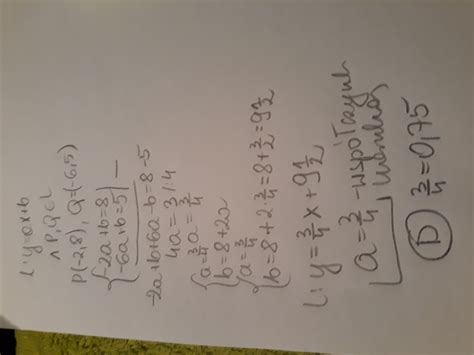 l: y=ax+b
∧ P,Q ∈ l
P(-2,8), Q=(-6,5)
{-2a+b=8
{-6a+b=5 | —
-2a+b+6a-b=8-5
4a=3 /:4
a=3/4
{a=3/4
{b=8+2a
{a=3/4
{b=8+2·3/4=8+3/2=9½
l: y=3/4x+9½
a=3/4 -współczynnik
(D) 3/4=0,75